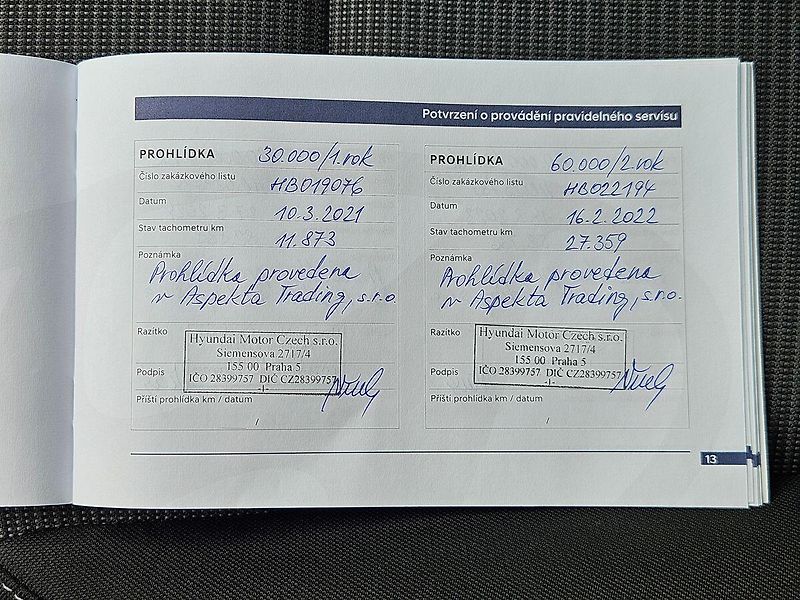 Potvrzení o provádění pravidelného servisu
PROHLÍDKA 30.000/1.rok
Číslo zakázkového listu HB019076
Datum 10.3.2021
Stav tachometru km 11.873
Poznámka
Prohlídka provedena
v Aspekta Trading, s.r.o.
Razítko
Hyundai Motor Czech s.r.o.
Siemensova 2717/4
155 00 Praha 5
IČO 28399757 DIČ CZ28399757
-1-
Podpis
Příští prohlídka km / datum
/
PROHLÍDKA 60.000/2.rok
Číslo zakázkového listu HB022194
Datum 16.2.2022
Stav tachometru km 27.359
Poznámka
Prohlídka provedena
v Aspekta Trading, s.r.o.
Razítko
Hyundai Motor Czech s.r.o.
Siemensova 2717/4
155 00 Praha 5
IČO 28399757 DIČ CZ28399757
-1-
Podpis
Příští prohlídka km / datum
/
13